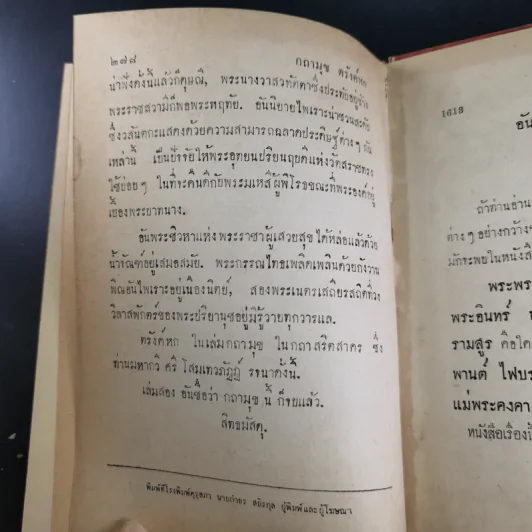 ๒๗๘
กถามุข ตรังค์หก
น่าฟังดังนี้แล้วก็ดุษณี, พระนางวาสวทัตตาซึ่งประทับอยู่ข้าง
พระราชสวามีก็พอพระหฤทัย. อันนิยายไพเราะน่าชวนสะดับ
ซึ่งวสันตกะแสดงด้วยความสามารถฉลาดประดิษฐ์ต่างๆ กัน
เหล่านี้ เป็นปัจจัยให้พระอุทยนเปรียบฤบดีแห่งวัตสราชทรง
ใช้บ่อยๆ ในที่จะคืนดีกับพระมเหสีผู้พิโรธขณะที่พระองค์อยู่
เบื้องพระบาทนาง.
อันพระชิวหาแห่งพระราชาผู้เสวยสุข ได้หล่อแล้วด้วย
น้ำจัณฑ์อยู่เสมอสมัย. พระกรรณไทธเพลิดเพลินด้วยกังวาน
พิณอันไพเราะอยู่เนืองนิตย์, สองพระเนตรเสถียรสถิตที่วง
วิลาสพักตร์ของพระปริยานุชอยู่มิรู้วายทุกวารแล.
ตรังค์หก ในเล่มกถามุข ในกถาสริตสาคร ซึ่ง
ท่านมหากวี ศรี โสมเทวภัฏฏ์ รจนาดังนี้.
เล่มสอง อันชื่อว่า กถามุข นี้ ก็จบแล้ว.
สิทธมัสตุ.
พิมพ์ที่โรงพิมพ์คุรุสภา นายกำธร สถิรกุล ผู้พิมพ์และผู้โฆษณา
อัน
ถ้าท่านอ่าน
ต่างๆ อย่างกว้าง
มักจะพบในหนังสื
พระพร
พระอินทร์
รามสูร คือใค
พานต์ ไฟบร
แม่พระคงคา
หนังสือเรื่องนี้